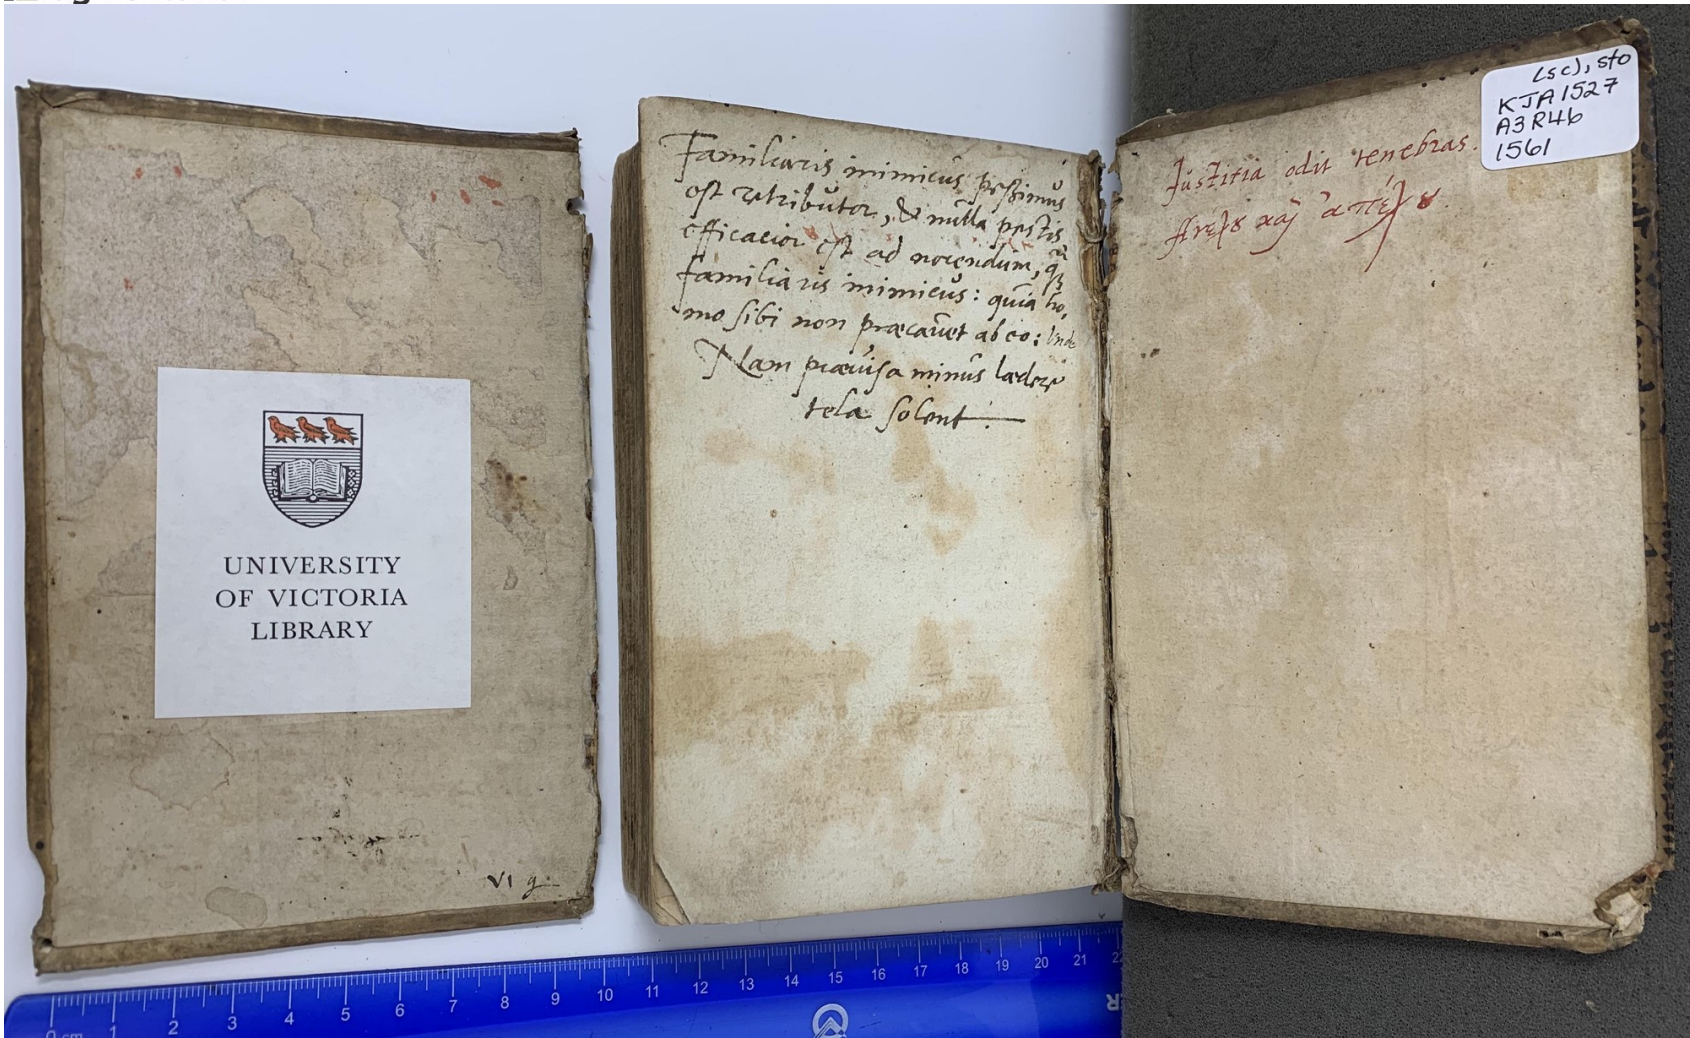 UNIVERSITY
OF VICTORIA
LIBRARY
VI g.
Familiaris inimicus pessimus
est retributor, & nulla pestis
efficacior est ad nocendum, qũ
familiaris inimicus: quia ho,
mo sibi non præcavet ab eo: Unde
Nam prævisa minus lædere
tela solent.
Justitia odit tenebras.
(sc), sto
KJA1527
A3R46
1561
0 cm 1 2 3 4 5 6 7 8 9 10 11 12 13 14 15 16 17 18 19 20 21 22